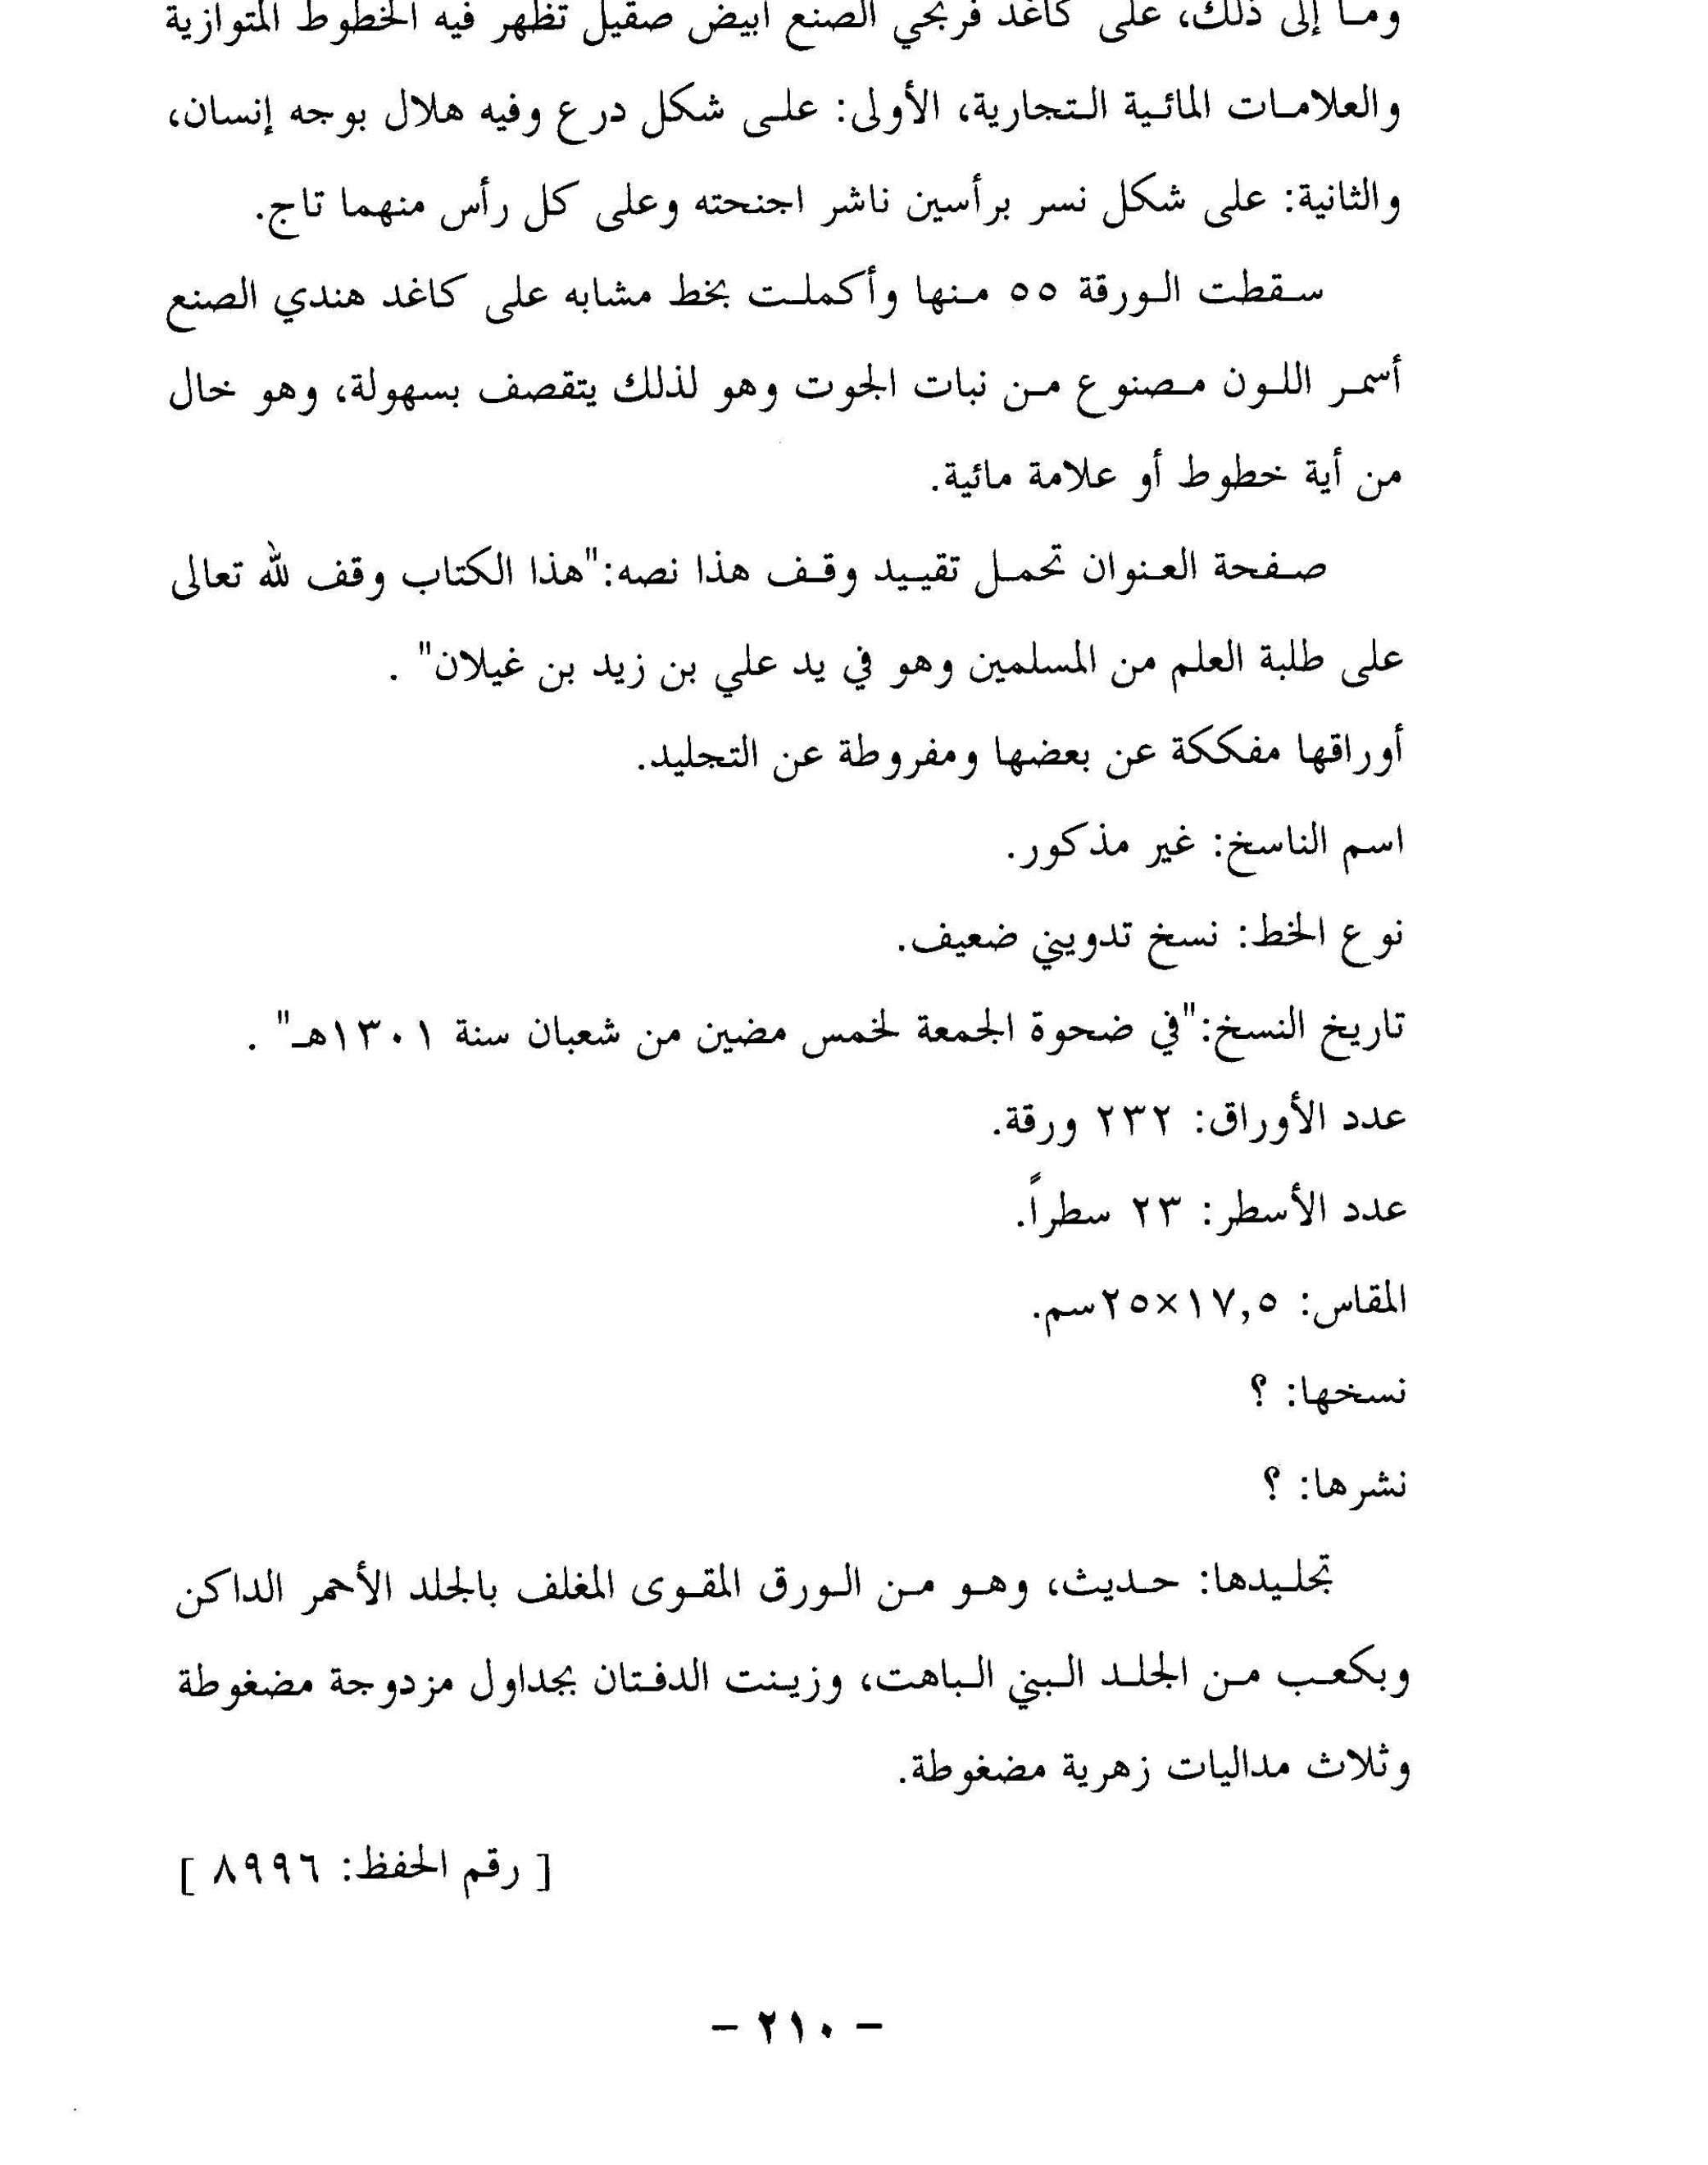 وما إلى ذلك، على كاغد فرنجي الصنع أبيض صقيل تظهر فيه الخطوط المتوازية
والعلامات المائية التجارية، الأولى: على شكل درع وفيه هلال بوجه إنسان،
والثانية: على شكل نسر برأسين ناشر اجنحته وعلى كل رأس منهما تاج.
سقطت الورقة ٥٥ منها وأكملت بخط مشابه على كاغد هندي الصنع
أسمر اللون مصنوع من نبات الجوت وهو لذلك يتقصف بسهولة، وهو خال
من أية خطوط أو علامة مائية.
صفحة العنوان تحمل تقييد وقف هذا نصه:"هذا الكتاب وقف لله تعالى
على طلبة العلم من المسلمين وهو في يد علي بن زيد بن غيلان" .
أوراقها مفككة عن بعضها ومفروطة عن التجليد.
اسم الناسخ: غير مذكور.
نوع الخط: نسخ تدويني ضعيف.
تاريخ النسخ:"في ضحوة الجمعة لخمس مضين من شعبان سنة ١٣٠١هـ" .
عدد الأوراق: ٢٣٢ ورقة.
عدد الأسطر: ٢٣ سطراً.
المقاس: ١٧,٥×٢٥سم.
نسخها: ؟
نشرها: ؟
تجليدها: حديث، وهو من الورق المقوى المغلف بالجلد الأحمر الداكن
وبكعب من الجلد البني الباهت، وزينت الدفتان بجداول مزدوجة مضغوطة
وثلاث مداليات زهرية مضغوطة.
[ رقم الحفظ: ٨٩٩٦ ]
- ٢١٠ -